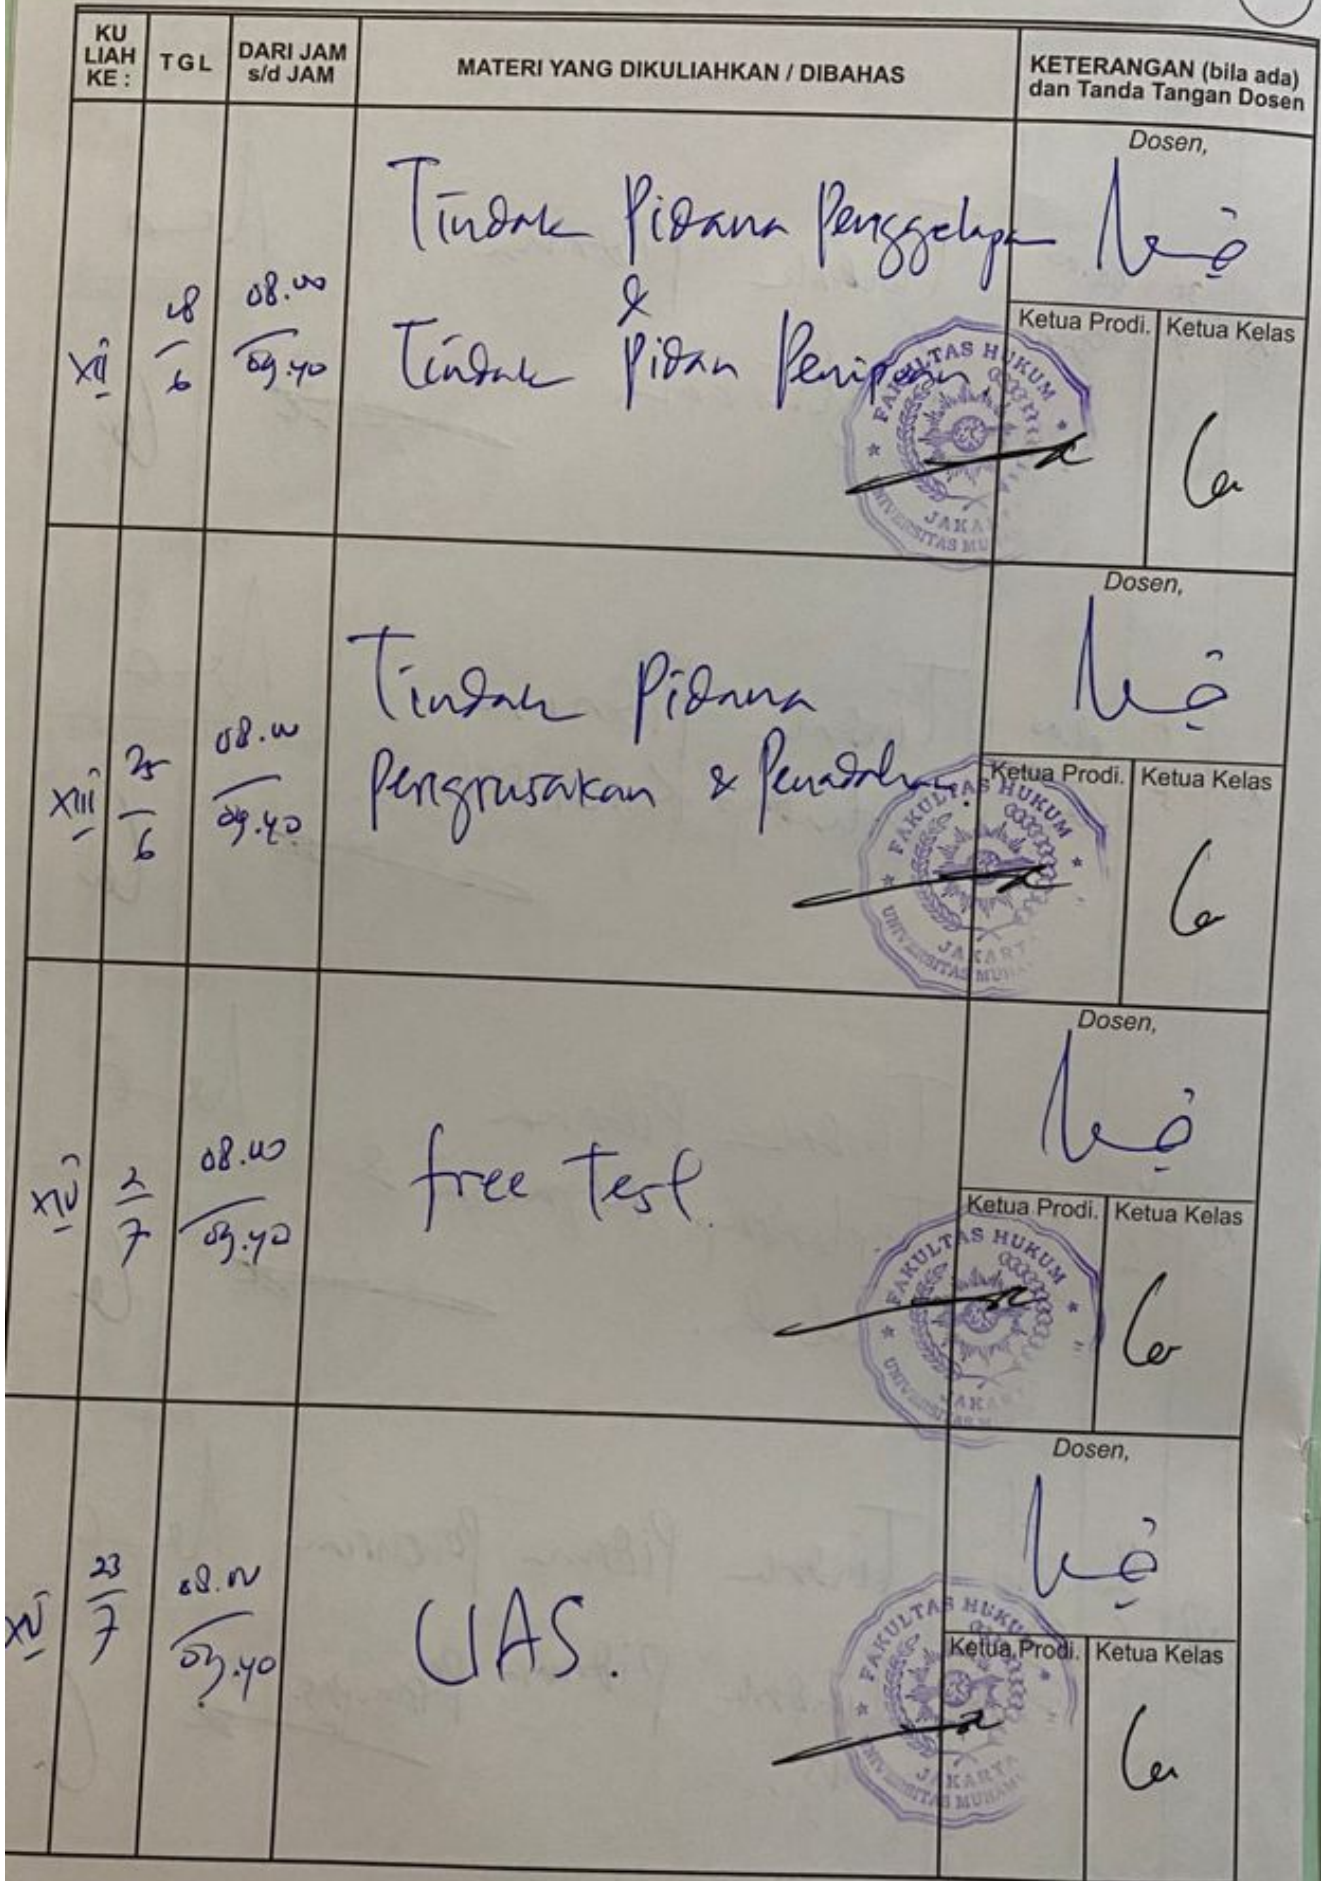 KU
LIAH
KE :
TGL
DARI JAM
s/d JAM
MATERI YANG DIKULIAHKAN / DIBAHAS
KETERANGAN (bila ada)
dan Tanda Tangan Dosen
XII
18
6
08.00
09.40
Tindak Pidana Penggelapan
&
Tindak Pidan Penipuan
Dosen,
Ketua Prodi.
Ketua Kelas
FAKULTAS HUKUM
JAKA
UNIVERSITAS MU
XIII
25
6
08.00
09.40
Tindak Pidana
Pengrusakan & Penadahan.
Dosen,
Ketua Prodi.
Ketua Kelas
FAKULTAS HUKUM
JAKART
UNIVERSITAS MUHA
XIV
2
7
08.00
09.40
free Test.
Dosen,
Ketua Prodi.
Ketua Kelas
FAKULTAS HUKUM
JAKAR
UNIVERSITAS M
XV
23
7
08.00
09.40
UAS.
Dosen,
Ketua Prodi.
Ketua Kelas
FAKULTAS HUKUM
JAKARTA
UNIVERSITAS MUHAMM